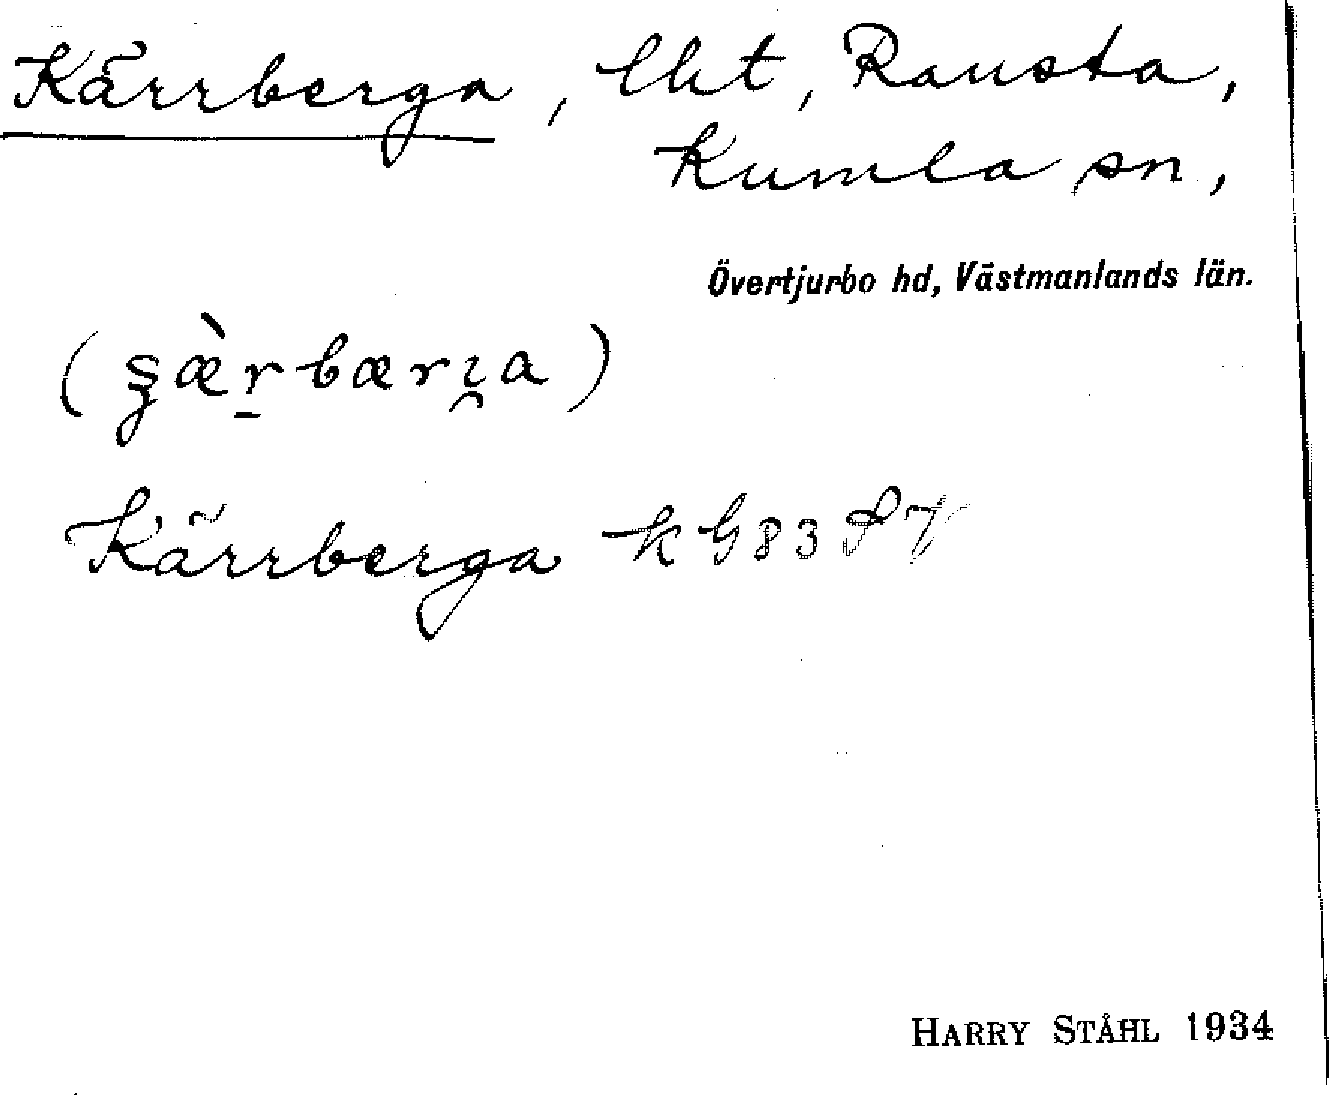 Kärrberga, lht, Rausta,
Kumla sn,
Övertjurbo hd, Västmanlands län.
Kärrberga k G83
HARRY STÅHL 1934